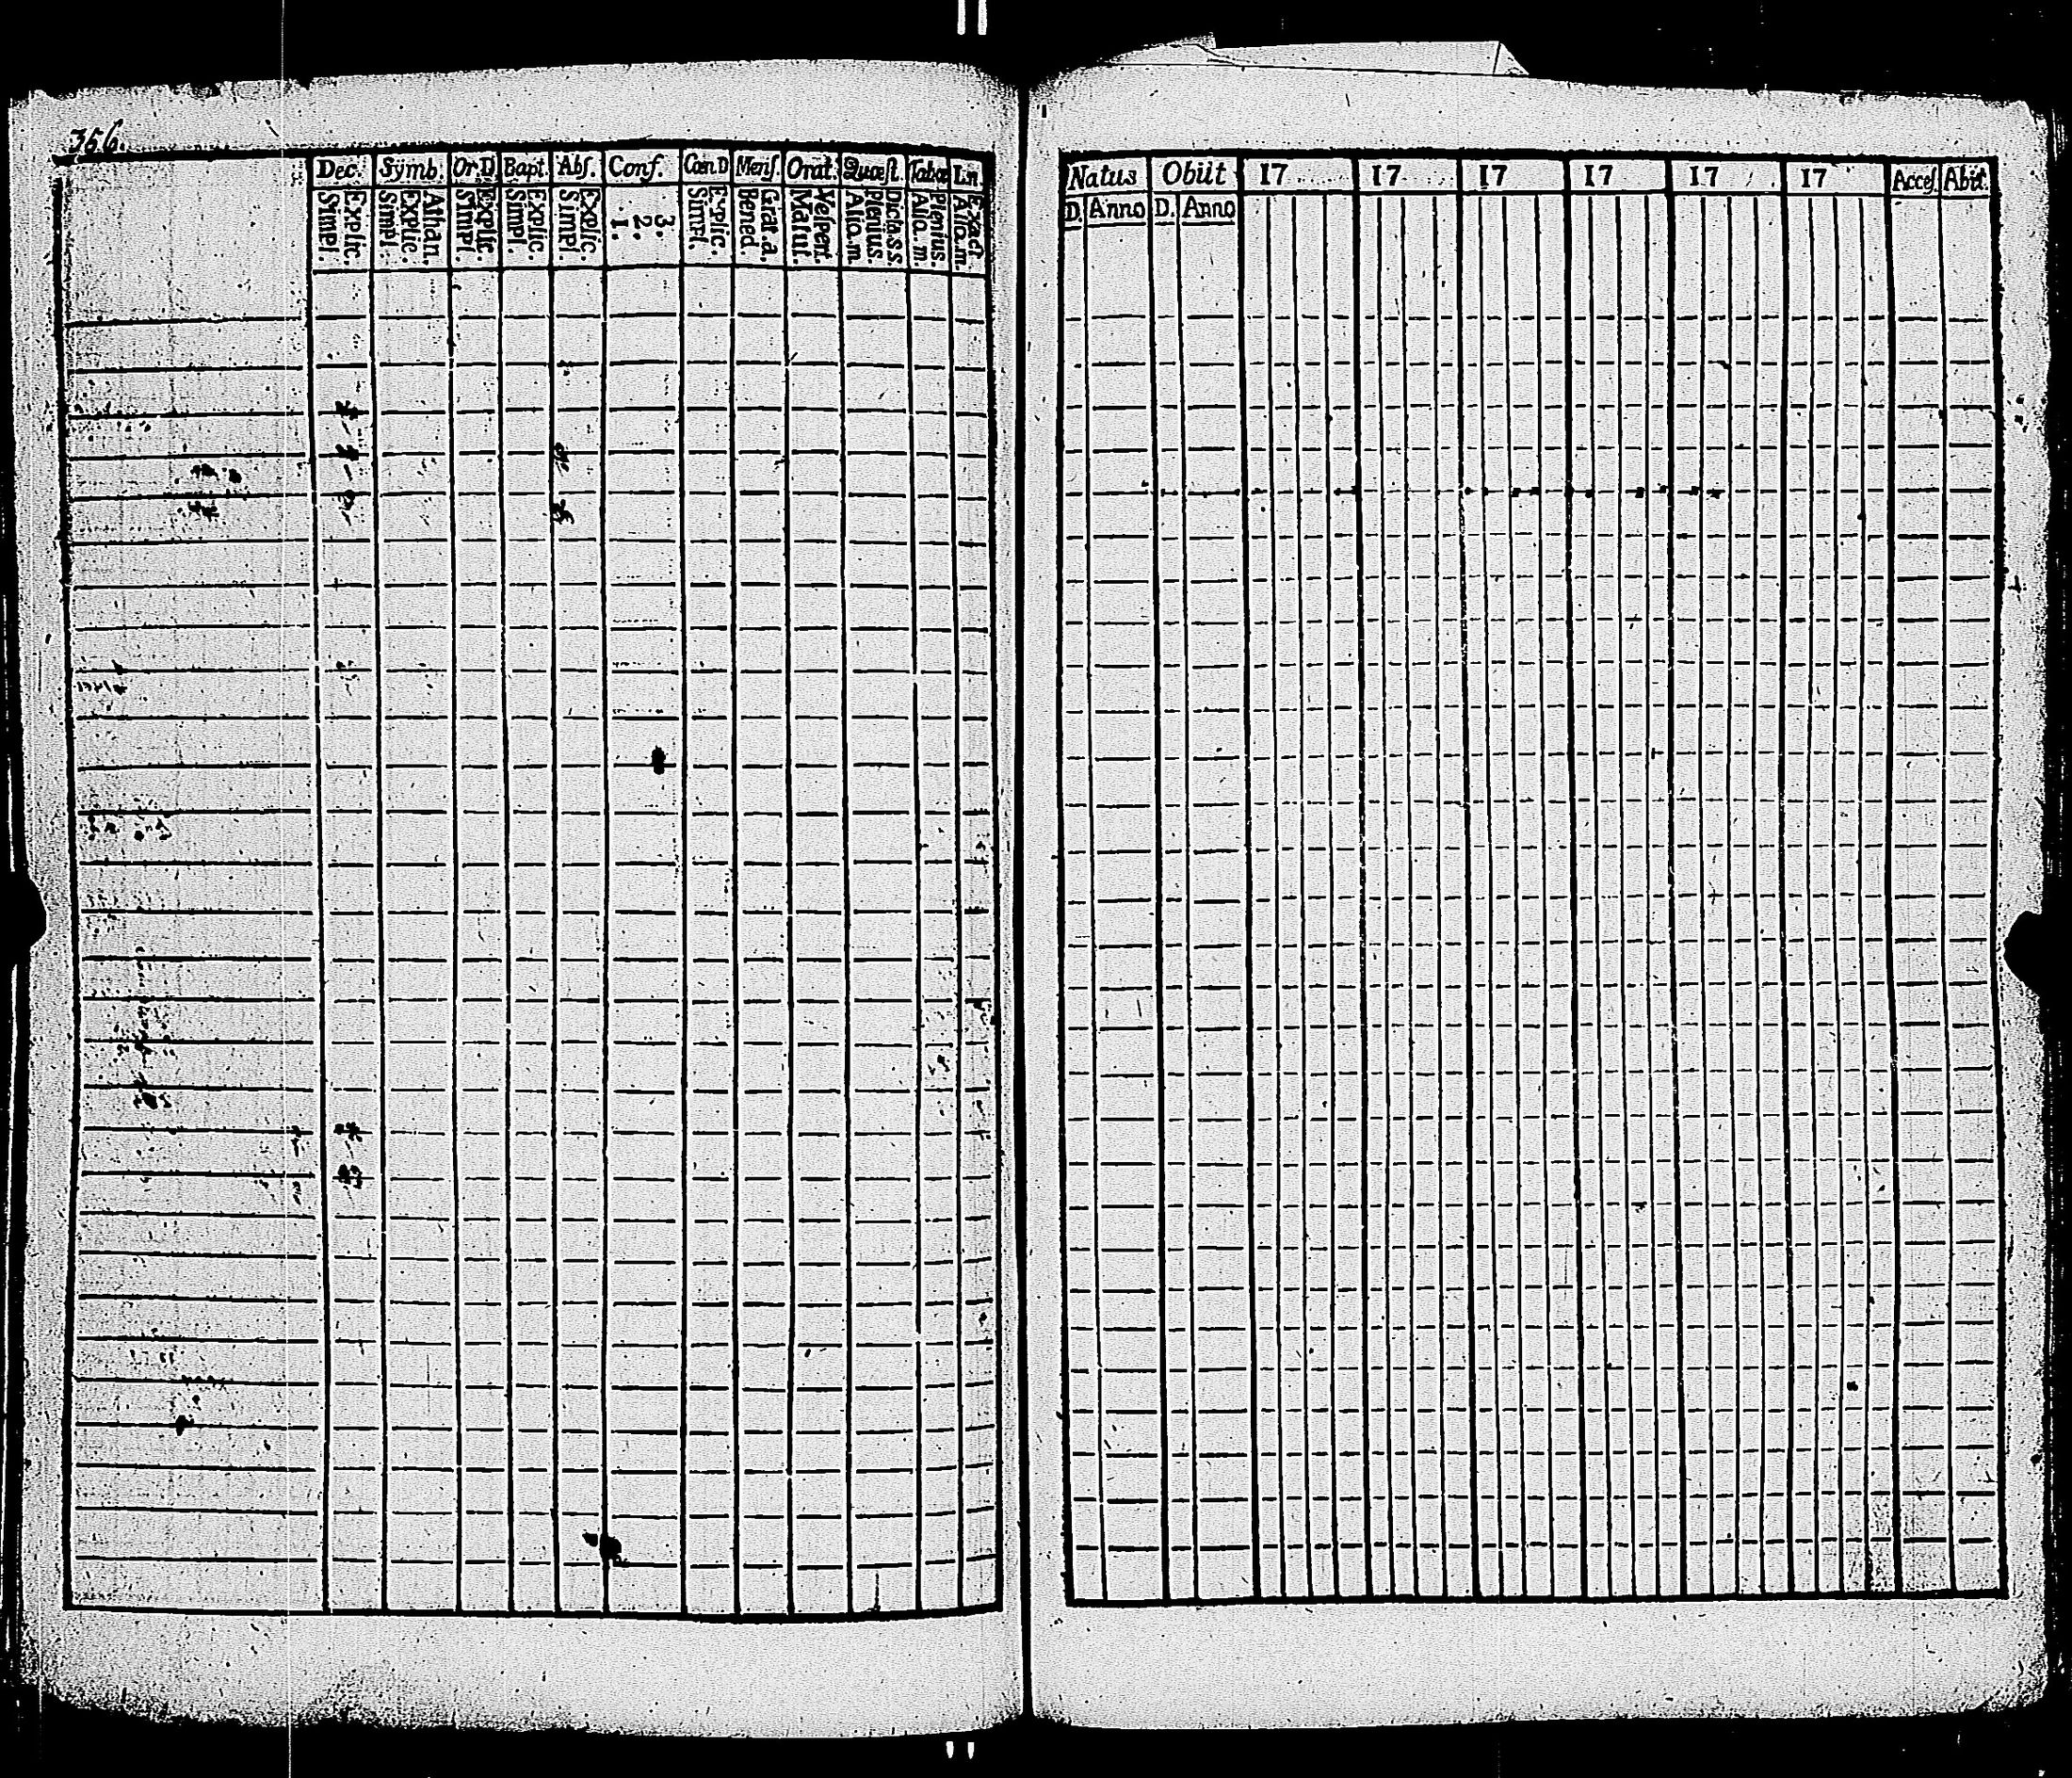 356.
Dec. Symb. Or.D. Bapt. Abſ. Conf. Cœn.D Menſ. Orat. Quæſt. Tabœ Ln
Simpl. Explic. Simpl. Explic. Athan. Simpl. Explic. Simpl. Explic. Simpl. Explic. 1. 2. 3. Simpl. Explic. Bened. Grat.a. Matut. Veſpert. Alio.m Plenius. Dicta.s.s. Alio.m. Plenius. Alio.m. Exact
Natus Obiit 17 17 17 17 17 17 Acceſ. Abit.
D. Anno D. Anno